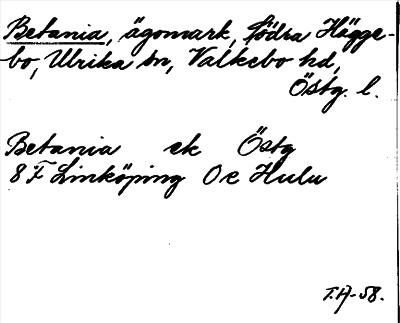 Betania, ägomark, Södra Hägge-
bo, Ulrika sn, Valkebo hd,
Östg. l.
Betania ek Östg
8 F Linköping O e Hulu
T.A-58.